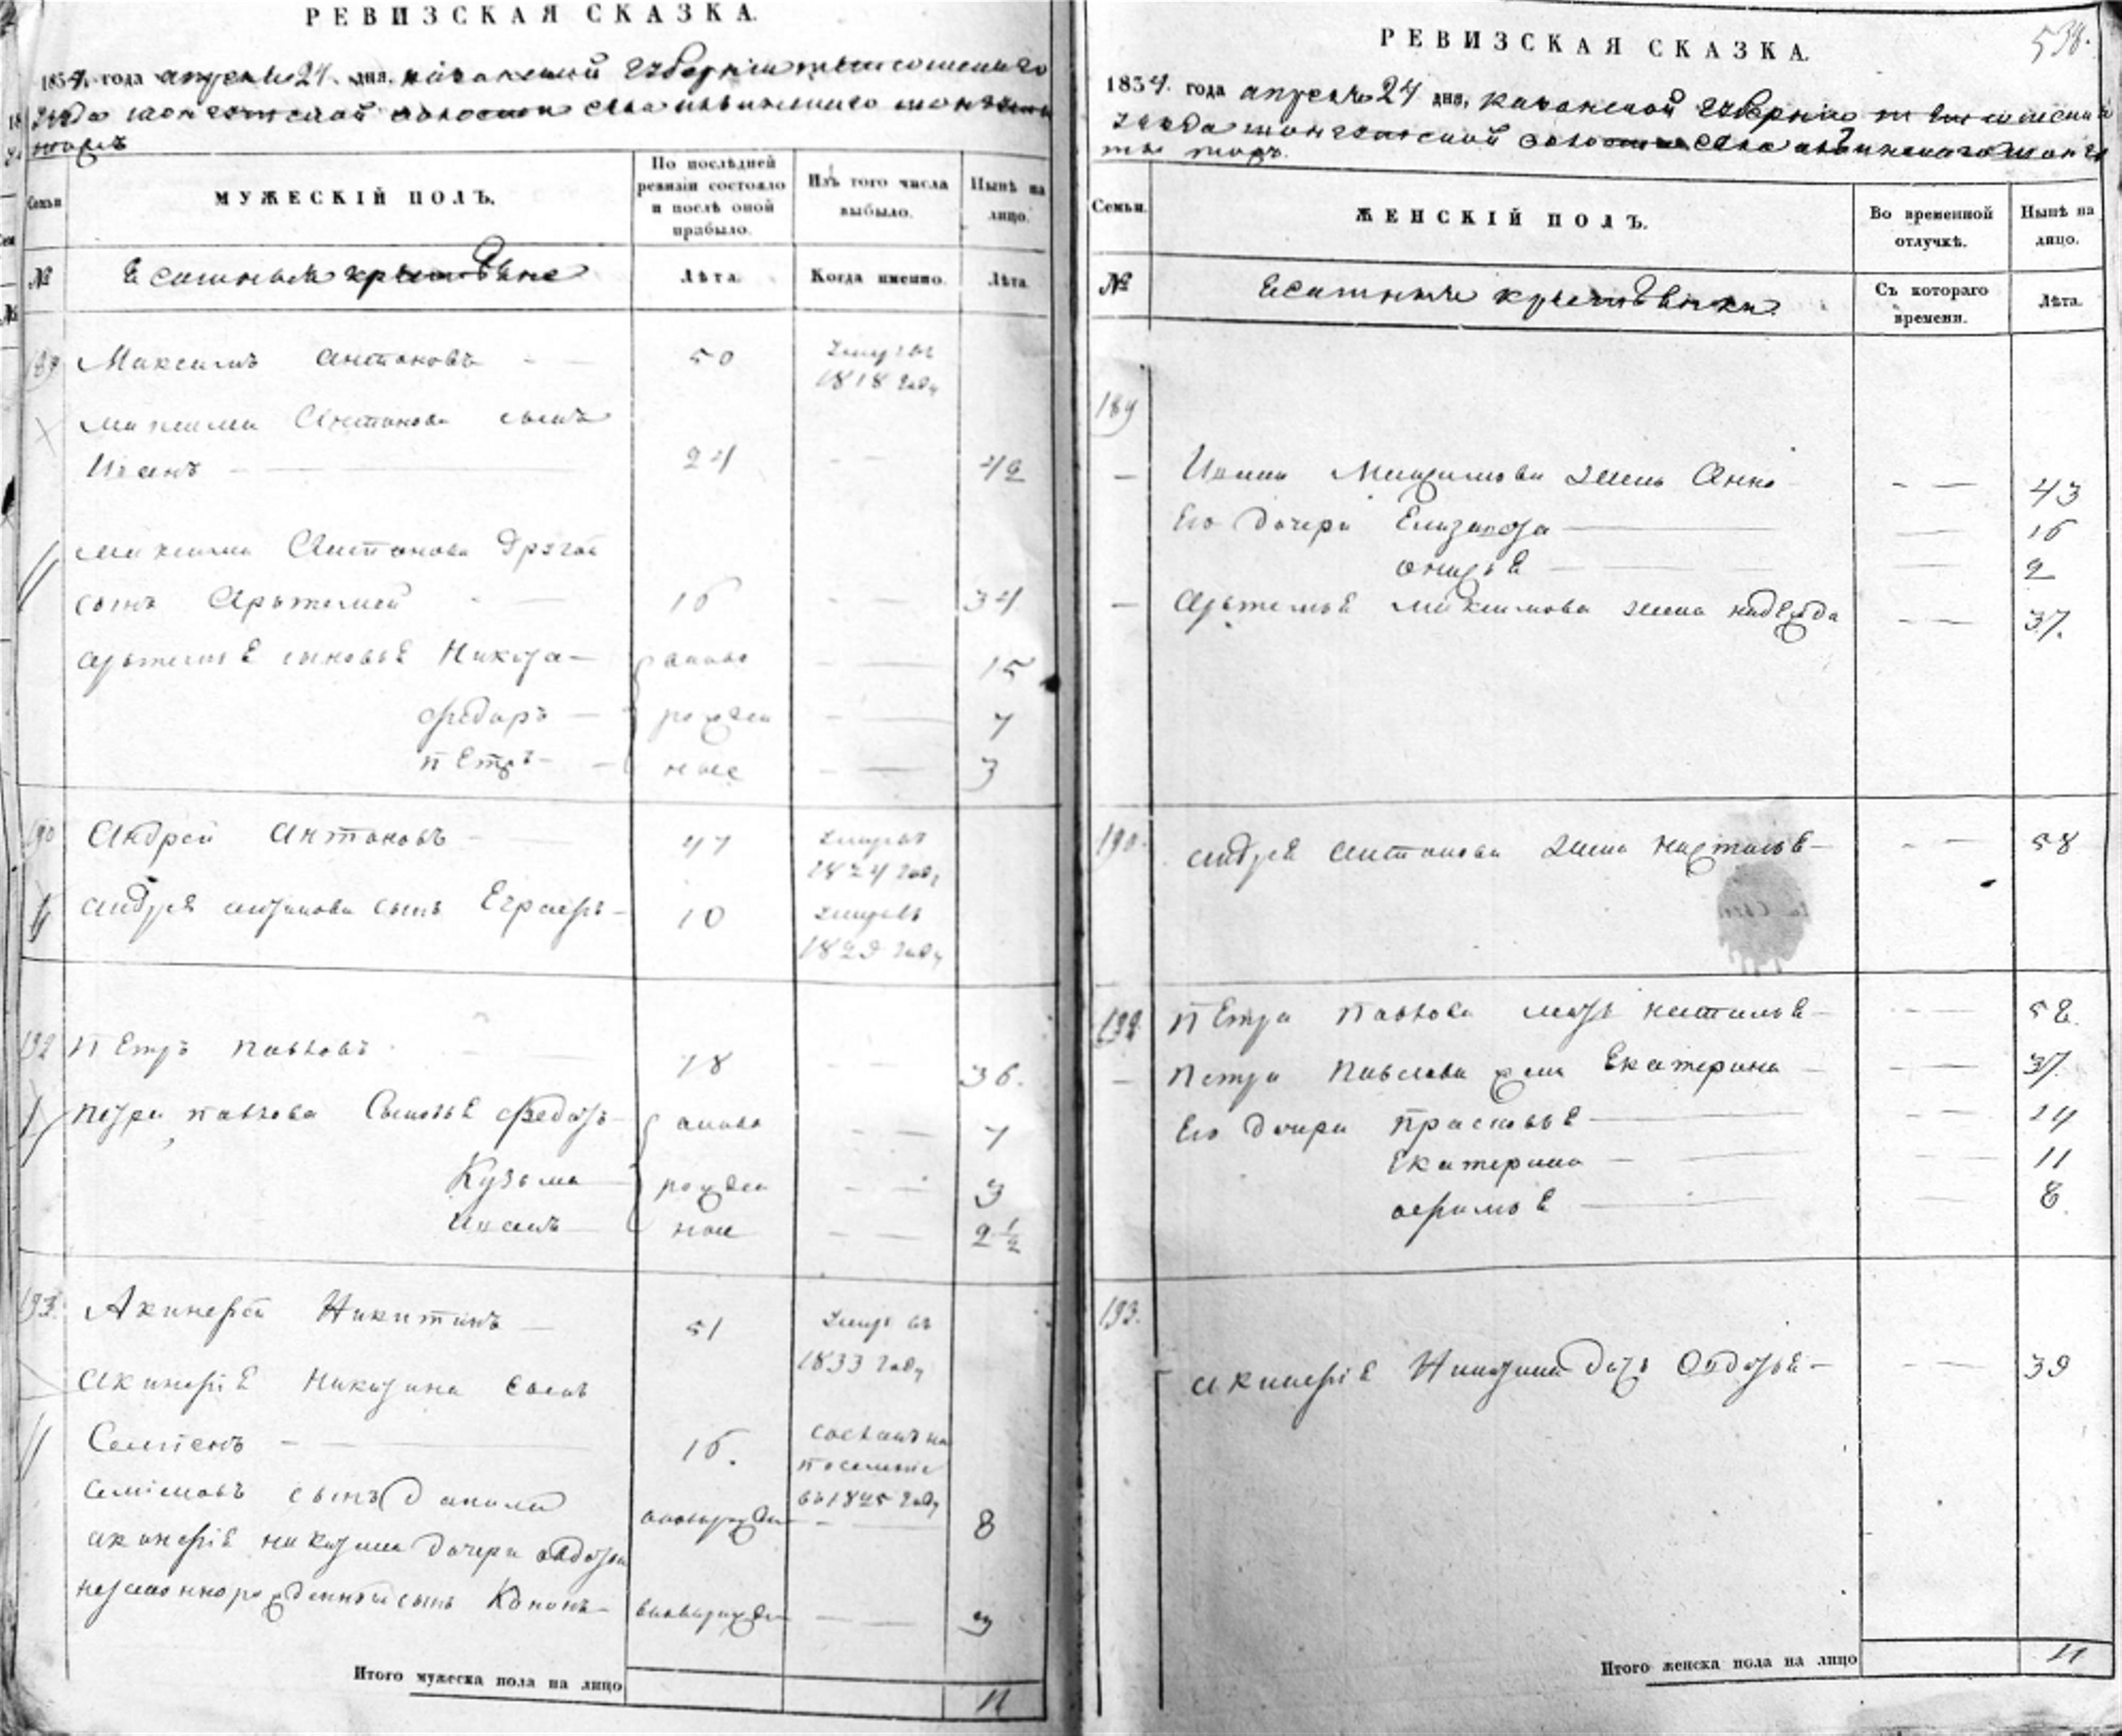 РЕВИЗСКАЯ СКАЗКА.
1834 года апреля 24 дня, казанской губернии
уезда волости села
МУЖЕСКІЙ ПОЛЪ.
Семьи
По послѣдней ревизіи состояло и послѣ оной прибыло.
Изъ того числа выбыло.
Нынѣ на лицо.
№
Ясашныя крестьяне
Лѣта.
Когда именно.
Лѣта
189 Максимъ Антоновъ 50 умре въ
1818 году
Максима Антонова сынъ
Иванъ 24 42
Максима Антонова другой
сынъ Артемей 16 34
Артемья сыновья Никита вново 15
Федоръ рожден 7
Петръ ные 3
190 Андрей Антоновъ 47 умре въ
1824 году
Андрея Антонова сынъ Еграфъ 10 умре въ
1829 году
192 Петръ Павловъ 18 36.
Петра Павлова сыновья Федотъ вново 7
Кузьма рожден 3
Иванъ ные 2 1/2
193. Акинфей Никитинъ 51 умре въ
1833 году
Акинфия Никитина сынъ
Семенъ 16. сосланъ на
поселение
въ 1825 году
Семеновъ сынъ Данила вноворожден 8
Акинфия Никитина дочери Авдотьи
незаконнорожденный сынъ Кононъ вноворожден 3
Итого мужеска пола на лицо 11
538.
РЕВИЗСКАЯ СКАЗКА.
1834 года апреля 24 дня, казанской губернии
уезда волости села
Семьи.
ЖЕНСКІЙ ПОЛЪ.
Во временной отлучкѣ.
Нынѣ на лицо.
№
Ясашныя крестьянки
Съ котораго времени.
Лѣта.
189
Ивана Максимова жена Анна 43
Его дочери Елизавета 16
2
Артемья Максимова жена Надежда 37.
190. Андрея Антонова жена Настасья 58
192. Петра Павлова мать Наталья 58
Петра Павлова жена Екатерина 37
Его дочери Прасковья 14
Екатерина 11
8.
193.
Акинфия Никитина дочь Авдотья 39
Итого женска пола на лицо 11